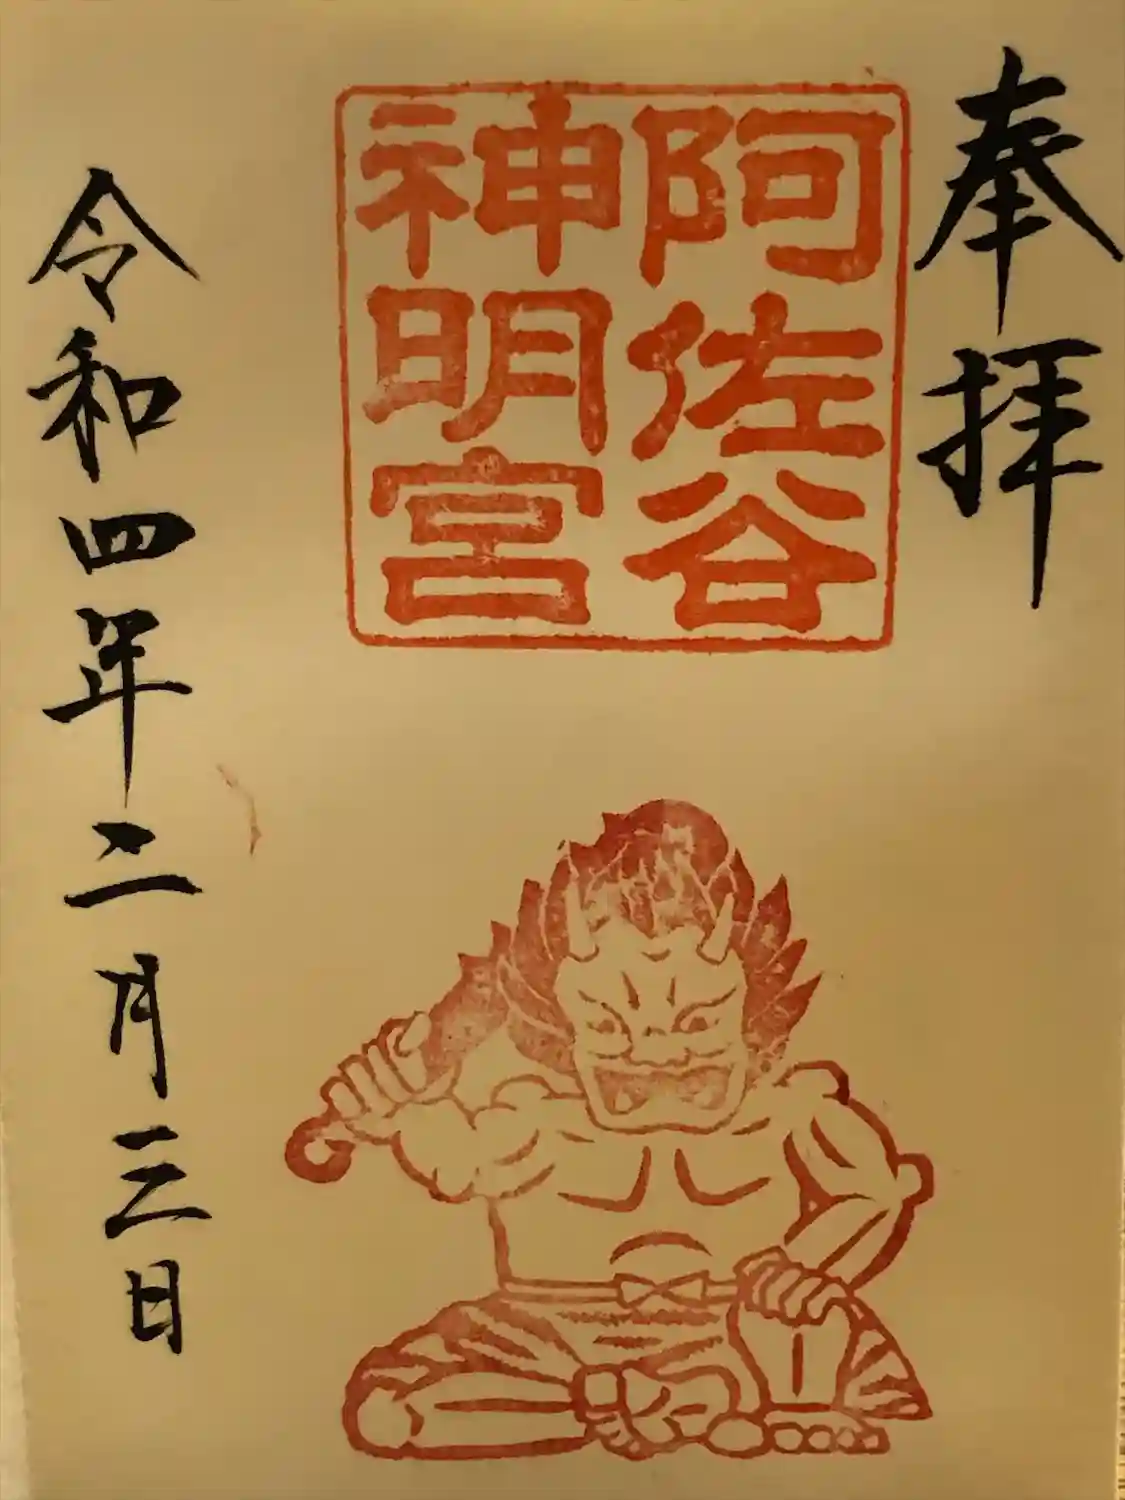 奉拝
阿佐谷
神明宮
令和四年二月三日